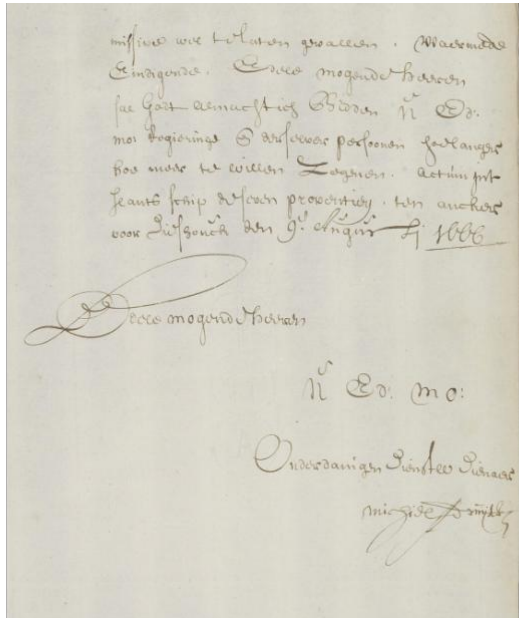 missive wel te laten gevallen. Waermede
Eindigende. Edele mogende heeren
sal Godt almachtich bidden UEd:
mo: Regieringe & derselver persoonen hoe langer
hoe meer te willen Zegenen. Actum int
Lants schip de seven proventien, ten ancker
voor den 9e. August 1666
Edele mogende heeren
U Ed: mo:
Onderdanigen Dienstw Dienaer
Michiel A d Ruijter